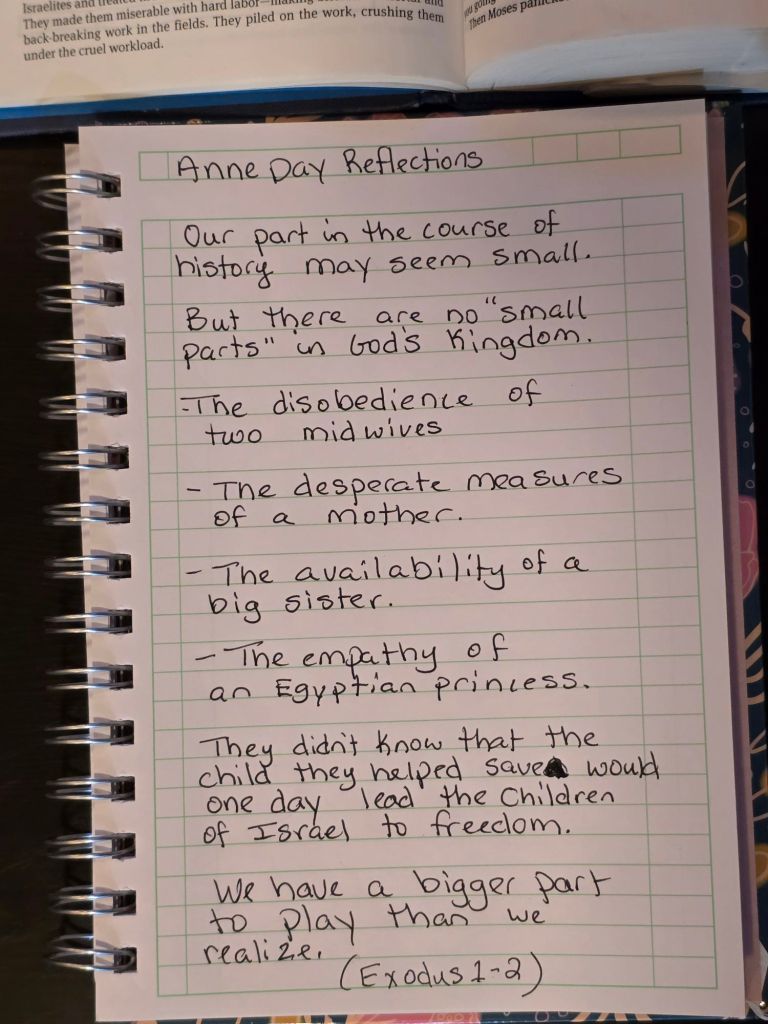 Israelites and
They made them miserable with hard labor—making
back-breaking work in the fields. They piled on the work, crushing them
under the cruel workload.
you going
Then Moses
Anne Day Reflections
Our part in the course of
history may seem small.
But there are no "small
parts" in God's Kingdom.
-The disobedience of
two midwives
- The desperate measures
of a mother.
- The availability of a
big sister.
- The empathy of
an Egyptian princess.
They didn't know that the
child they helped save would
one day lead the children
of Israel to freedom.
We have a bigger part
to play than we
realize.
(Exodus 1-2)